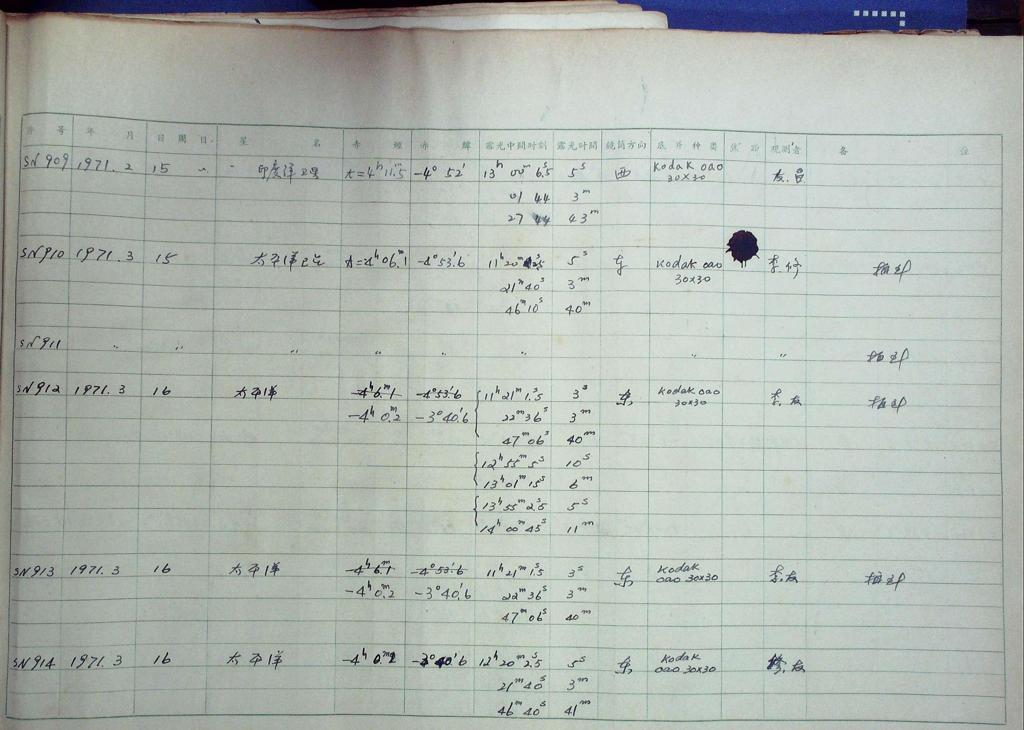 号 年 月 日 期 日 星 名 赤 經 赤 緯 露光中間时刻 露光时間 鏡筒方向 底片种类 焦 距 观測者 备 註
SN 909 1971. 2 15 〃 印度洋卫星 t=4h 11.m5 -4° 52' 13h 00m 6.s5 5s 西 Kodak oao
30×30
01 44 3m
27 44 43m
SN 910 1971. 3 15 太平洋卫星 t=4h 06.m1 -4°53'.6 11h 20m 5s 东 Kodak oao 李
30×30
21m 40s 3m
46m 10s 40m
SN 911 〃 〃 〃 〃 〃 〃 〃 〃
SN 912 1971. 3 16 太平洋 -4h 6.m1 -4°53'.6 11h 21m 1.s5 3s 东 Kodak oao 李. 友
30×30
-4h 0.m2 -3°40'.6 22m 36s 3m
47m 06s 40m
12h 55m 5s 10s
13h 01m 15s 6m
13h 55m 2.s5 5s
14h 00m 45s 11m
SN 913 1971. 3 16 太平洋 -4h 6.m1 -4°53'.6 11h 21m 1.s5 3s 东 Kodak 李. 友
oao 30×30
-4h 0.m2 -3°40'.6 22m 36s 3m
47m 06s 40m
SN 914 1971. 3 16 太平洋 -4h 0.m2 -3°40'.6 12h 20m 2.s5 5s 东 Kodak 友
oao 30×30
21m 40s 3m
46m 40s 41m